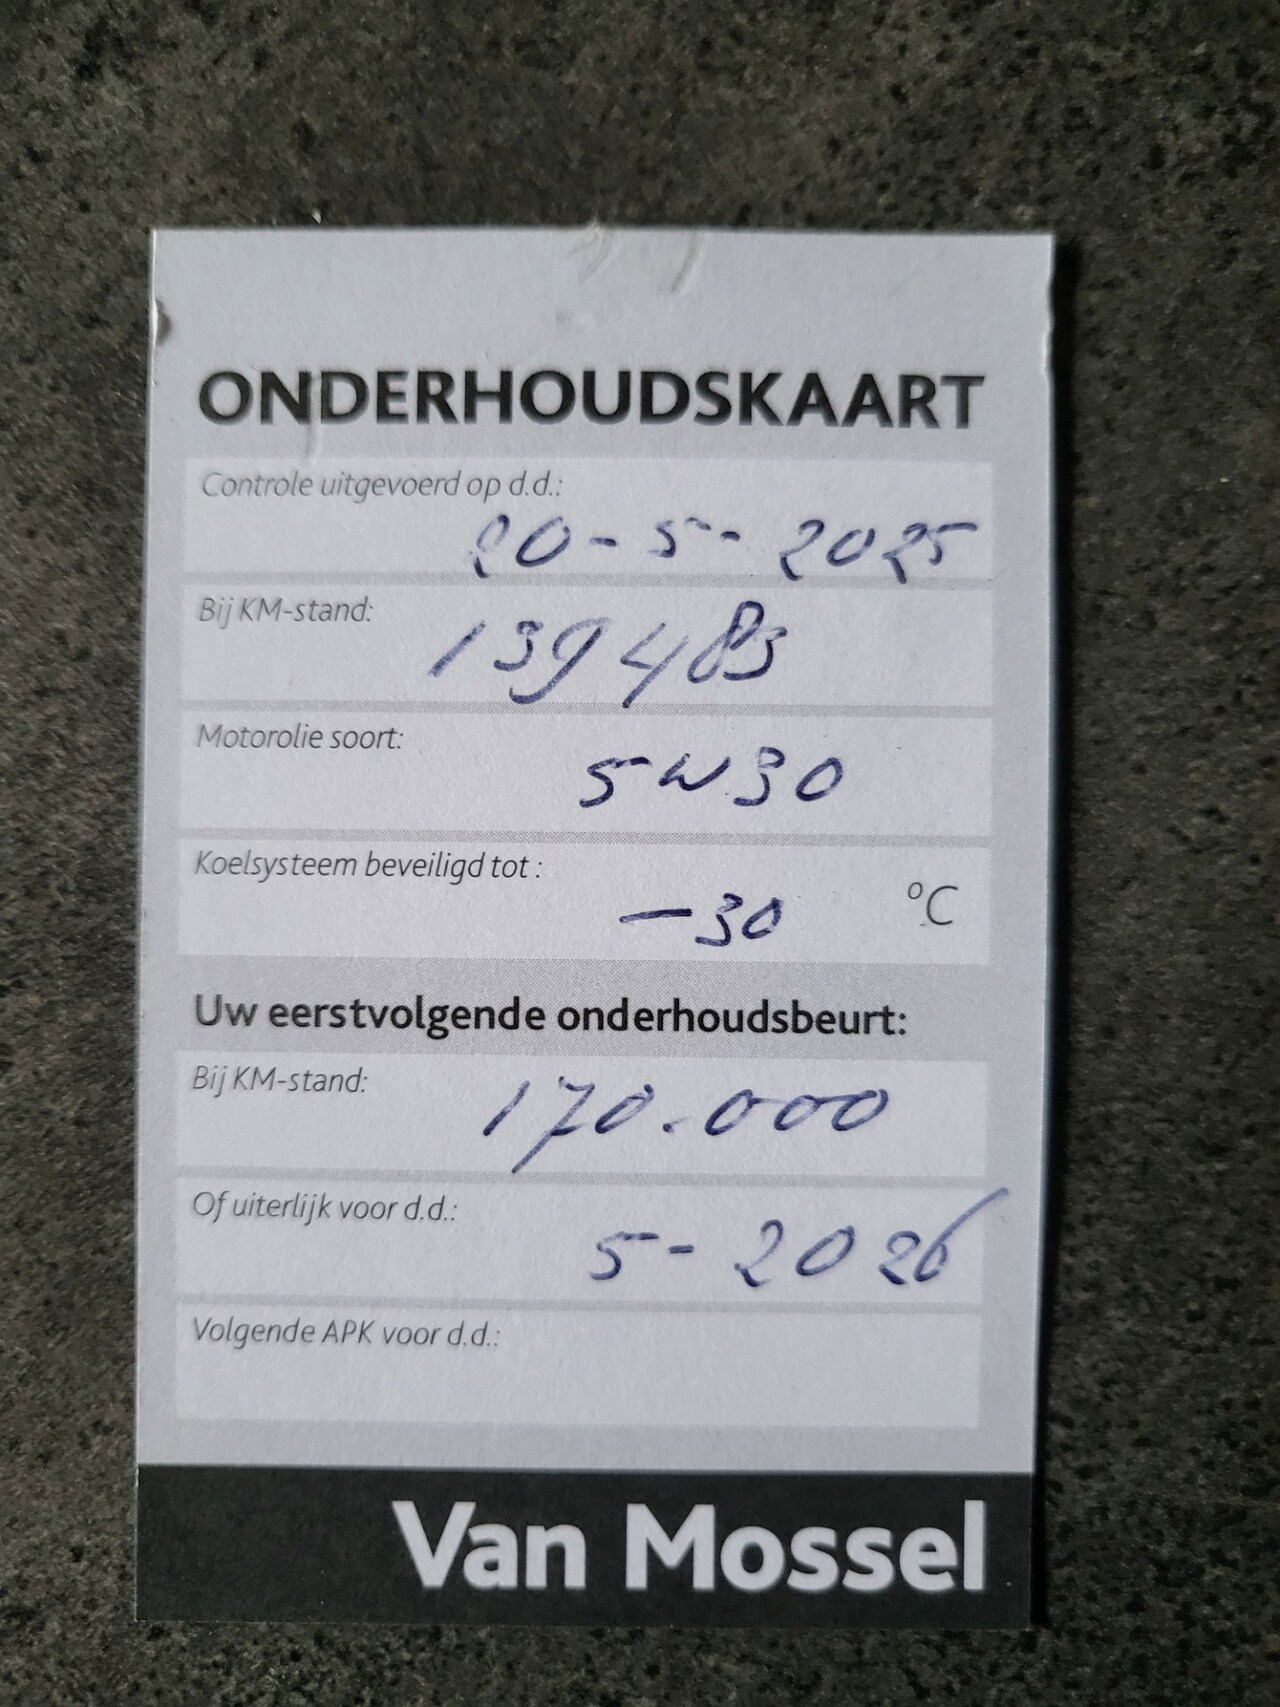 ONDERHOUDSKAART
Controle uitgevoerd op d.d.:
20-5-2025
Bij KM-stand:
139483
Motorolie soort:
5W30
Koelsysteem beveiligd tot :
-30 °C
Uw eerstvolgende onderhoudsbeurt:
Bij KM-stand:
170.000
Of uiterlijk voor d.d.:
5-2026
Volgende APK voor d.d.:
Van Mossel